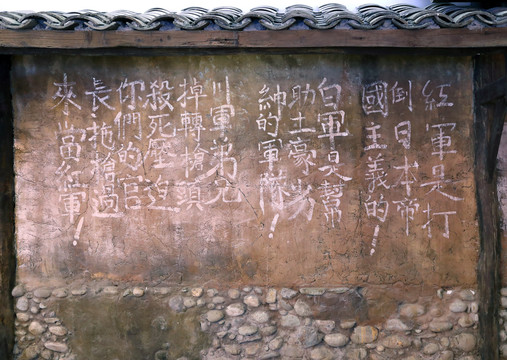 紅軍是打
倒日本帝
國主義的！
白軍是幫
助土豪劣
紳的軍隊！
川軍弟兄
掉轉槍頭
殺死壓迫
你們的官
長，拖槍過
來當紅軍！